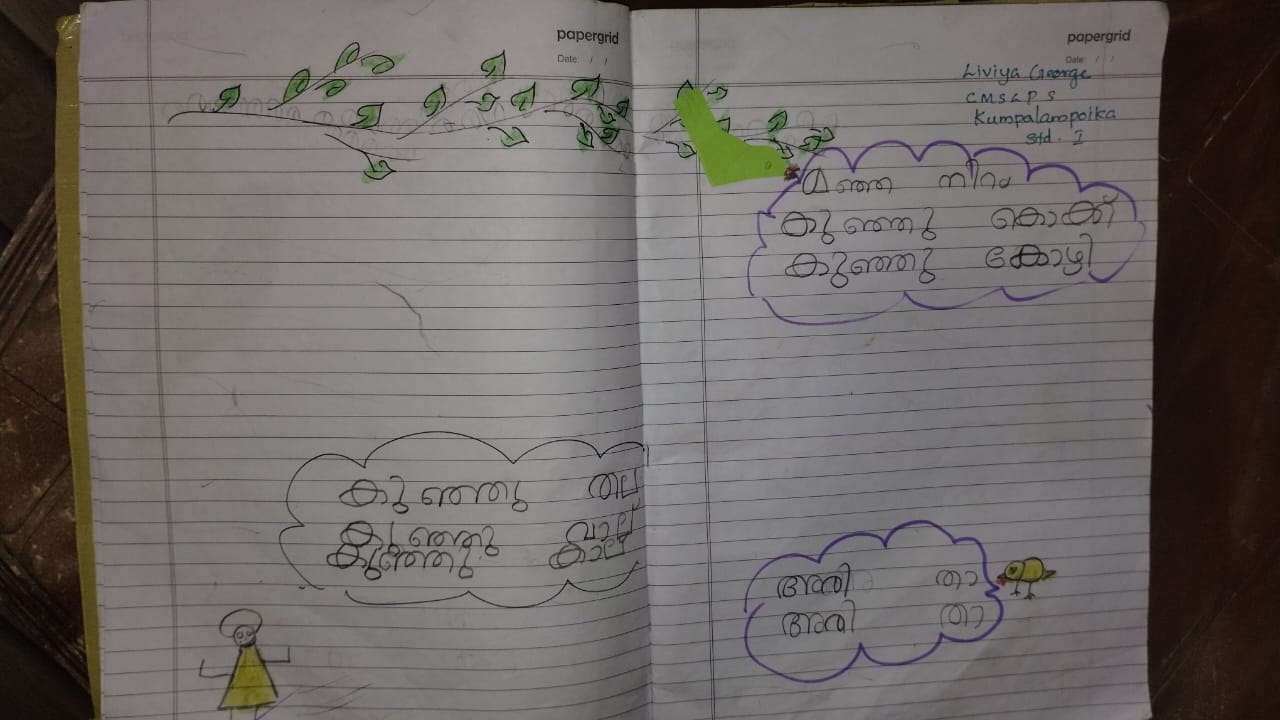 papergrid
Date: / /
കുഞ്ഞു തല
കുഞ്ഞു വാല്
കുഞ്ഞു കാല്
papergrid
Date: / /
Liviya George
CMSLPS
Kumpalampoika
Std. I
മഞ്ഞ നിറം
കുഞ്ഞു കൊക്ക്
കുഞ്ഞു കോഴി
അരി താ
അരി താ